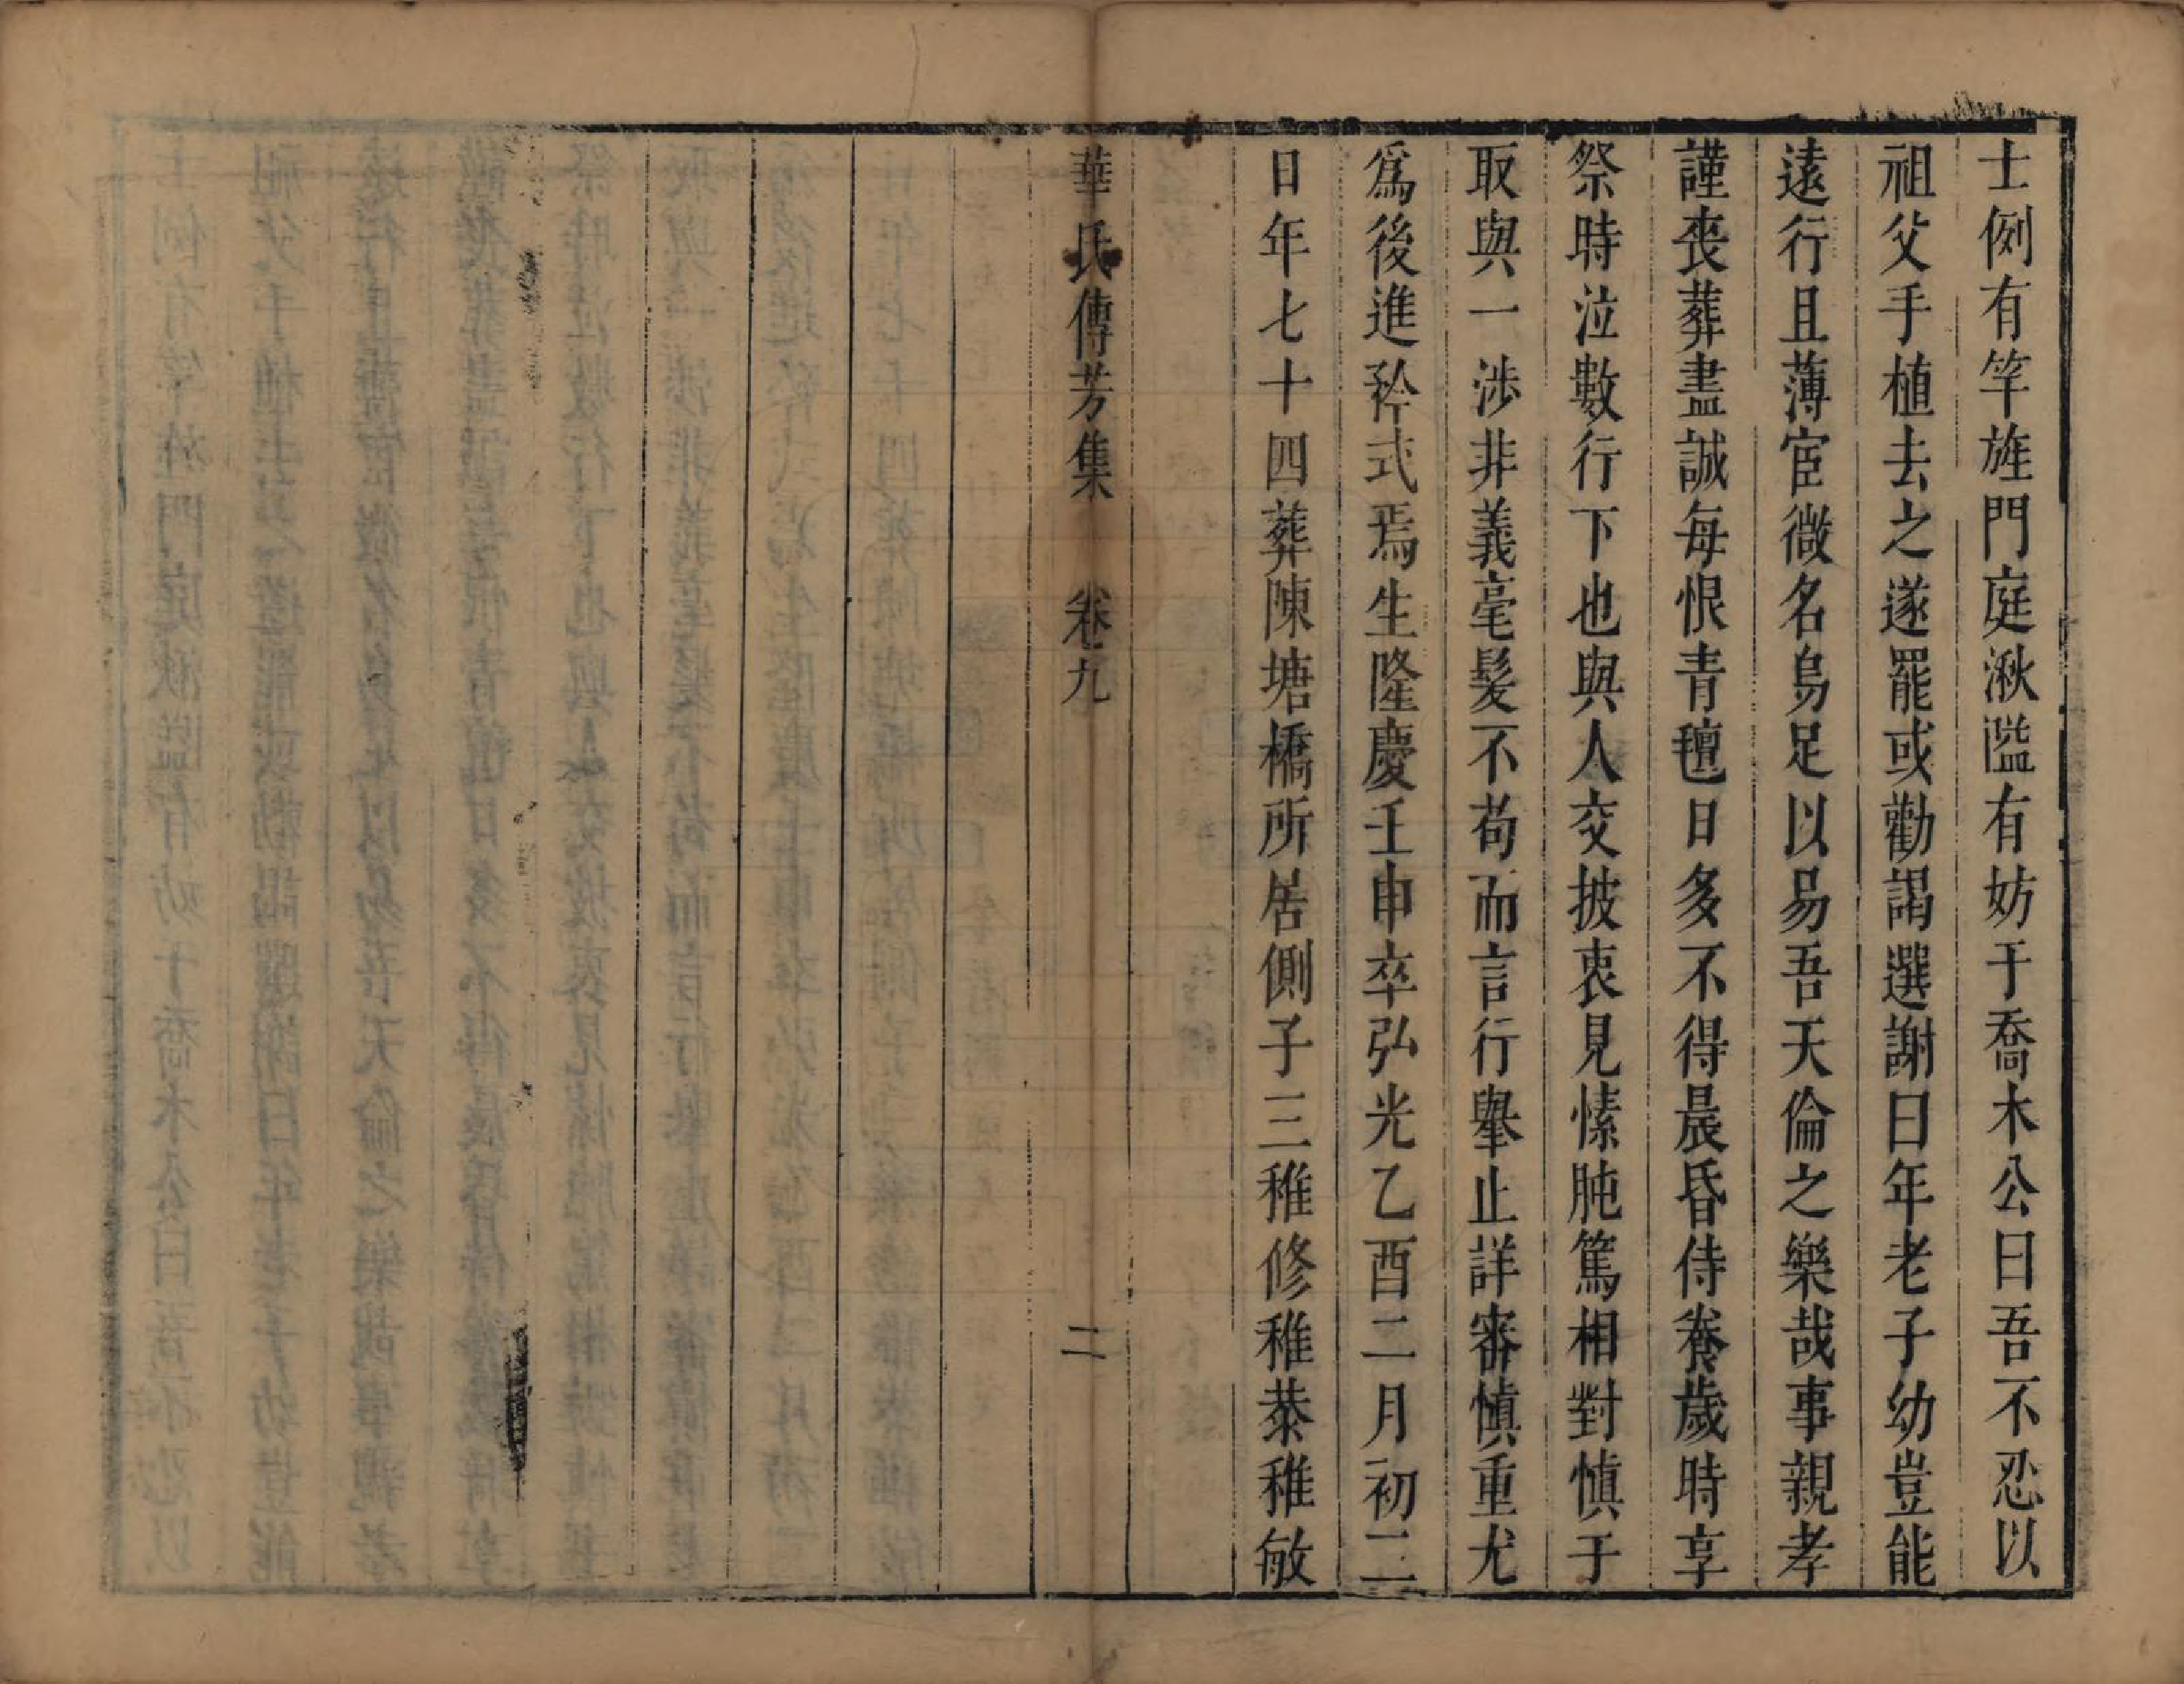 士例有竿旌門庭湫隘有妨于喬木公曰吾不忍以
祖父手植去之遂罷或勸謁選謝曰年老子幼豈能
遠行且薄宦微名烏足以易吾天倫之樂哉事親孝
謹喪葬盡誠每恨青氊日多不得晨昏侍養歲時享
祭時泣數行下也與人交披衷見愫肫篤相對慎于
取與一涉非義毫髮不苟而言行舉止詳審慎重尤
爲後進矜式焉生隆慶壬申卒弘光乙酉二月初二
日年七十四葬陳塘橋所居側子三稚修稚恭稚敏
華氏傳芳集　卷九
二